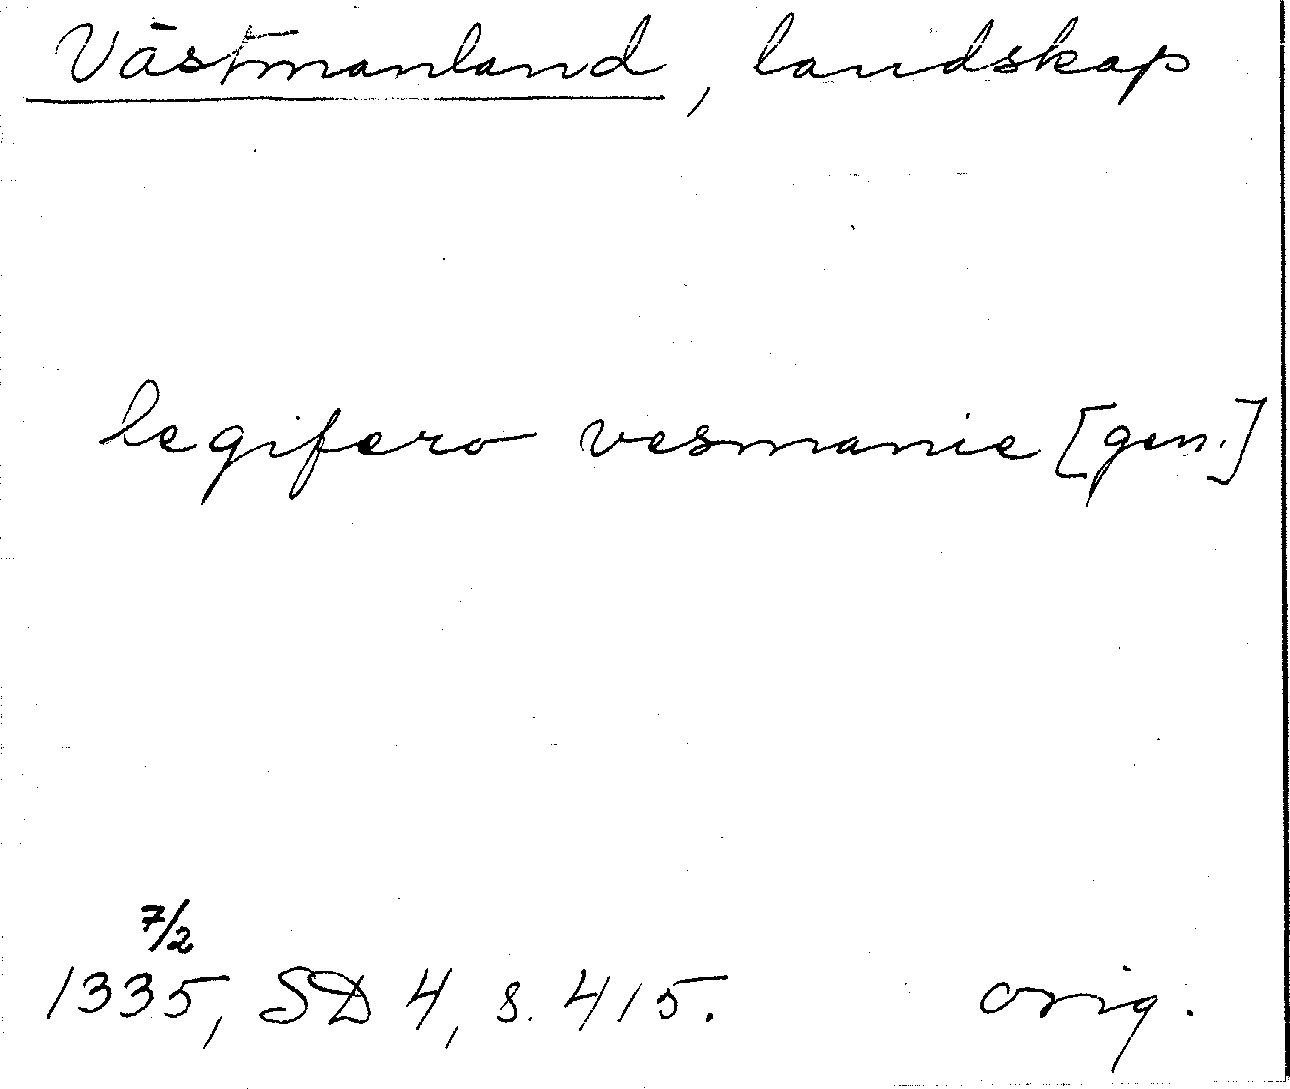 Västmanland, landskap
legifero vesmanie [gen.]
7/2
1335, SD 4, s. 415. orig.